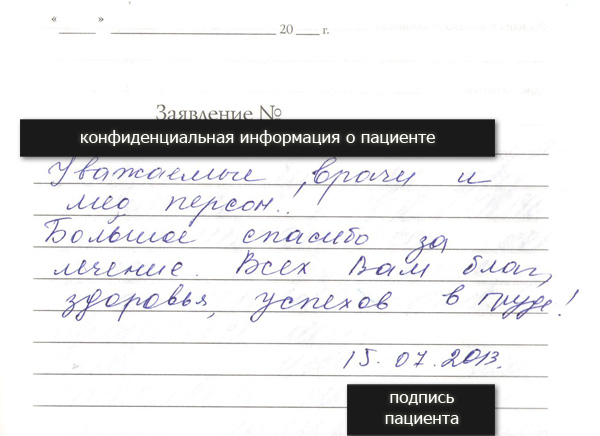 « ____ » ____________________ 20 ___ г.
Заявление №
конфиденциальная информация о пациенте
Уважаемые, врачи и
мед персон..
Большое спасибо за
лечение. Всех Вам благ,
здоровья, успехов в труде!
15.07.2013.
подпись
пациента